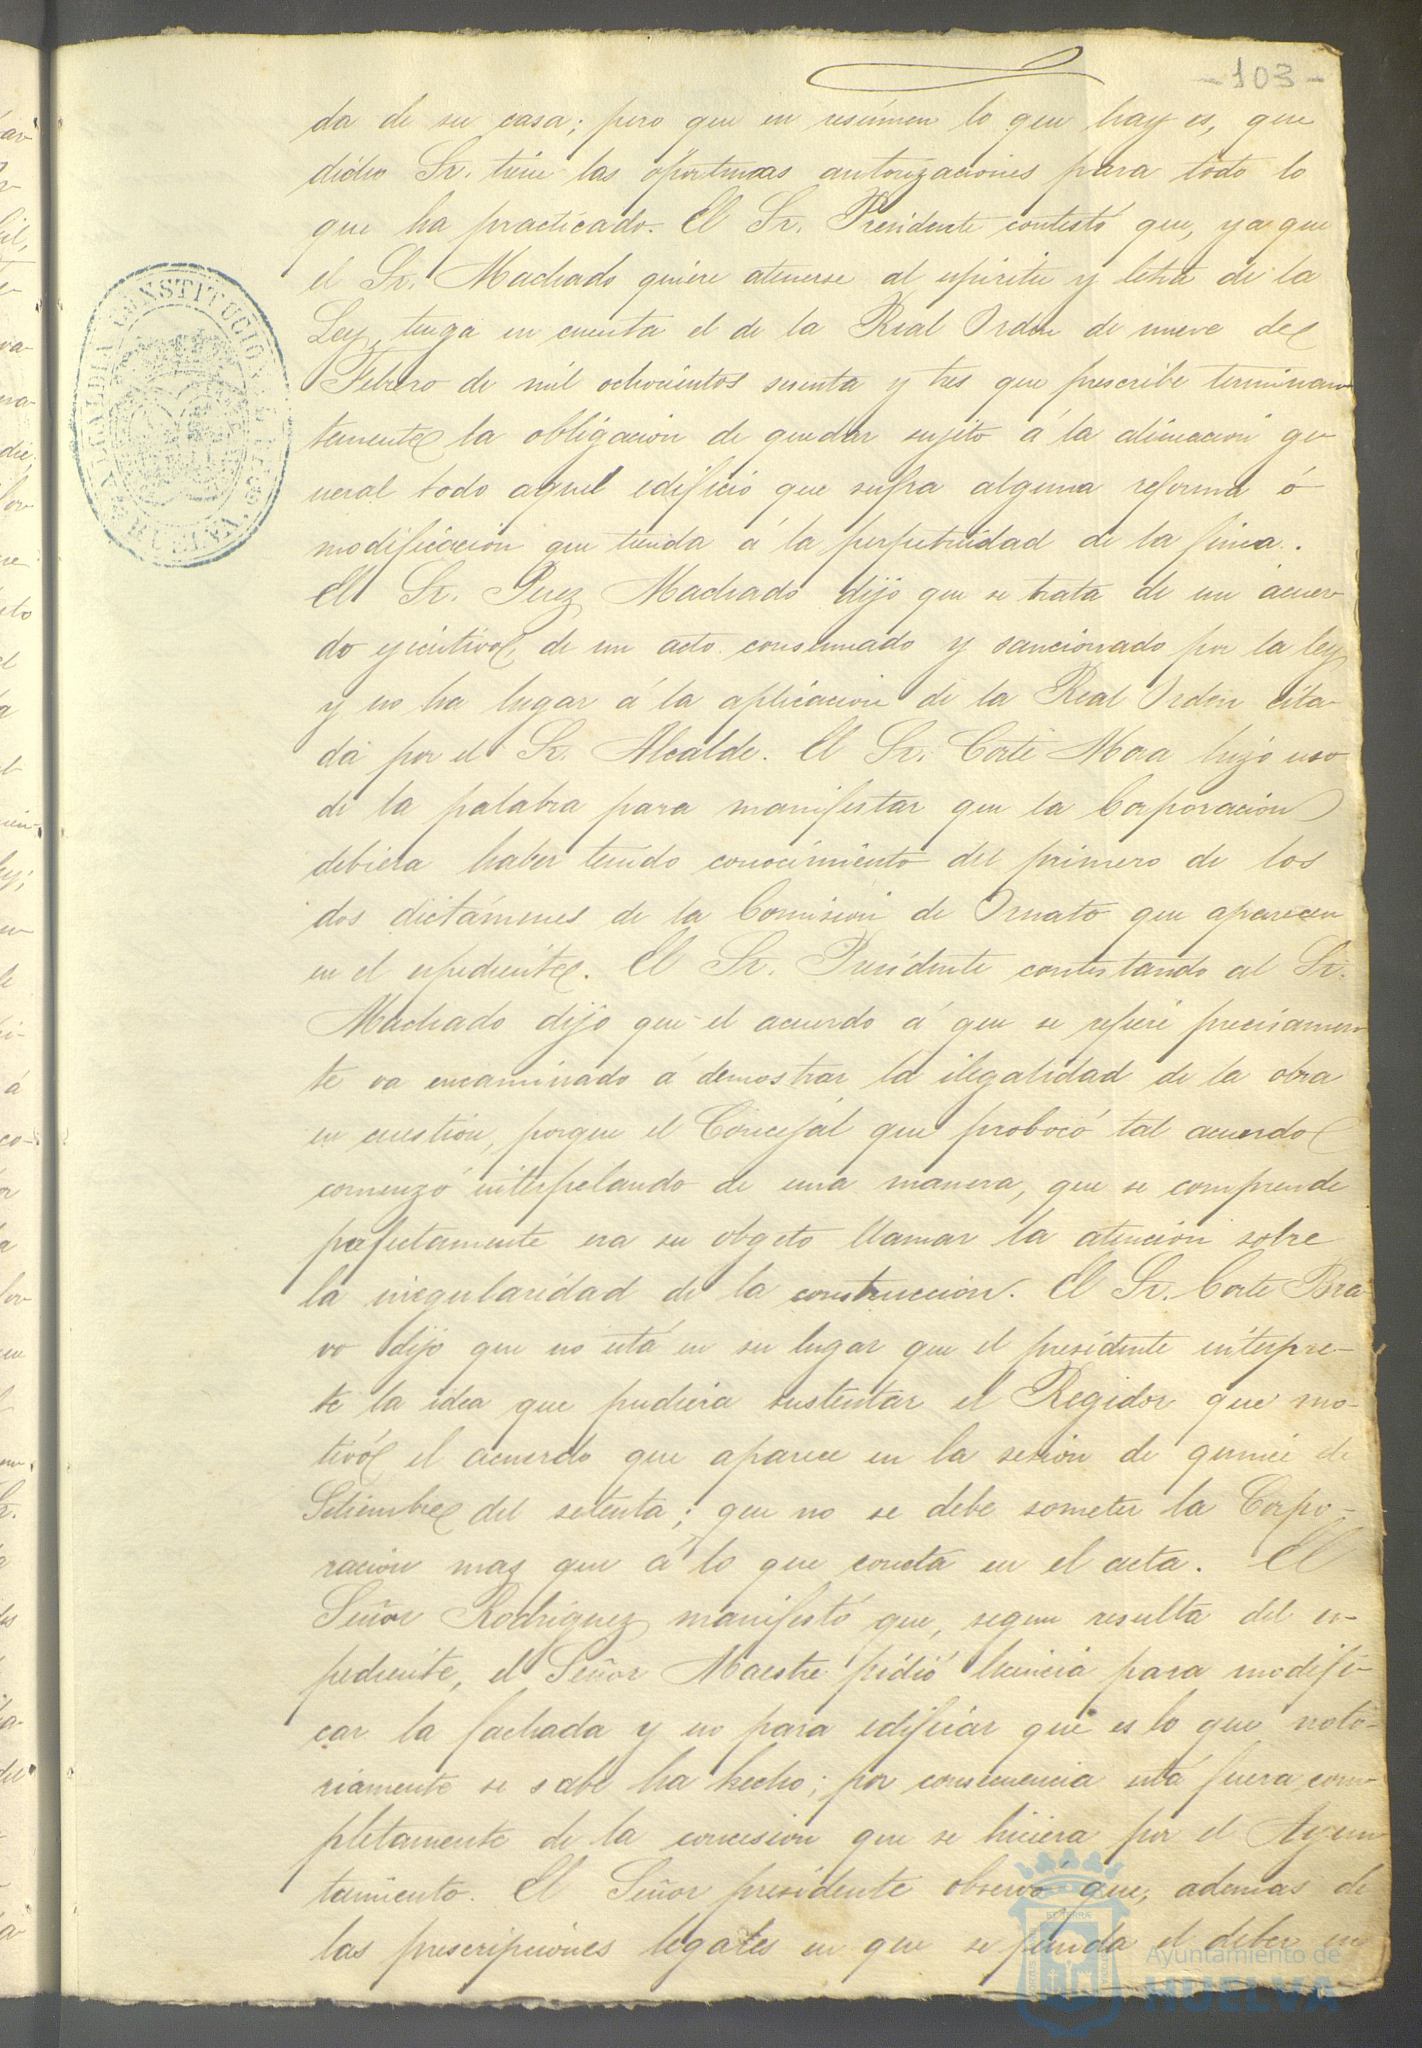 -103-
da de su casa; pero que en resúmen lo que hay es, que
dicho Sr. tiene las oportunas autorizaciones para todo lo
que ha practicado. El Sr. Presidente contestó que, ya que
el Sr. Machado quiere atenerse al espiritu y letra de la
Ley, tenga en cuenta el de la Real Orden de nueve de
Febrero de mil ochocientos sesenta y tres que prescribe terminan
temente la obligacion de quedar sujeto á la alineacion ge
neral todo aquel edificio que sufra alguna reforma ó
modificacion que tienda á la perpetuidad de la finca.
El Sr. Perez Machado dijo que se trata de un acuer-
do ejecutivo, de un acto consumado y sancionado por la ley
y no ha lugar á la aplicacion de la Real Orden cita-
da por el Sr. Alcalde. El Sr. Corte Mora hizo uso
de la palabra para manifestar que la Corporacion
debiera haber tenido conocimiento del primero de los
dos dictámenes de la Comision de Ornato que aparecen
en el espediente. El Sr. Presidente contestando al Sr.
Machado dijo que el acuerdo á que se refiere precisamen
te va encaminado á demostrar la ilegalidad de la obra
en cuestion, porque el Concejál que probocó tal acuerdo
comenzó interpelando de una manera, que se comprende
perfectamente era su obgeto llamar la atencion sobre
la irregularidad de la construccion. El Sr. Corte Bra
vo dijo que no está en su lugar que el presidente interpre-
te la idea que pudiera sustentar el Regidor que mo-
tivó el acuerdo que aparece en la sesion de quince de
Setiembre del setenta; que no se debe someter la Corpo-
racion mas que á lo que consta en el acta. El
Señor Rodriguez manifestó que, segun resulta del es-
pediente, el Señor Maestre pidió licencia para modifi-
car la fachada y no para edificar que es lo que noto-
riamente se sabe ha hecho; por consecuencia está fuera com-
pletamente de la concesion que se hiciera por el Ayun
tamiento. El Señor presidente observó que, ademas de
las prescripciones legales en que se funda el deber
ALCALDIA CONSTITUCIONAL
HUELVA
Ayuntamiento de
HUELVA